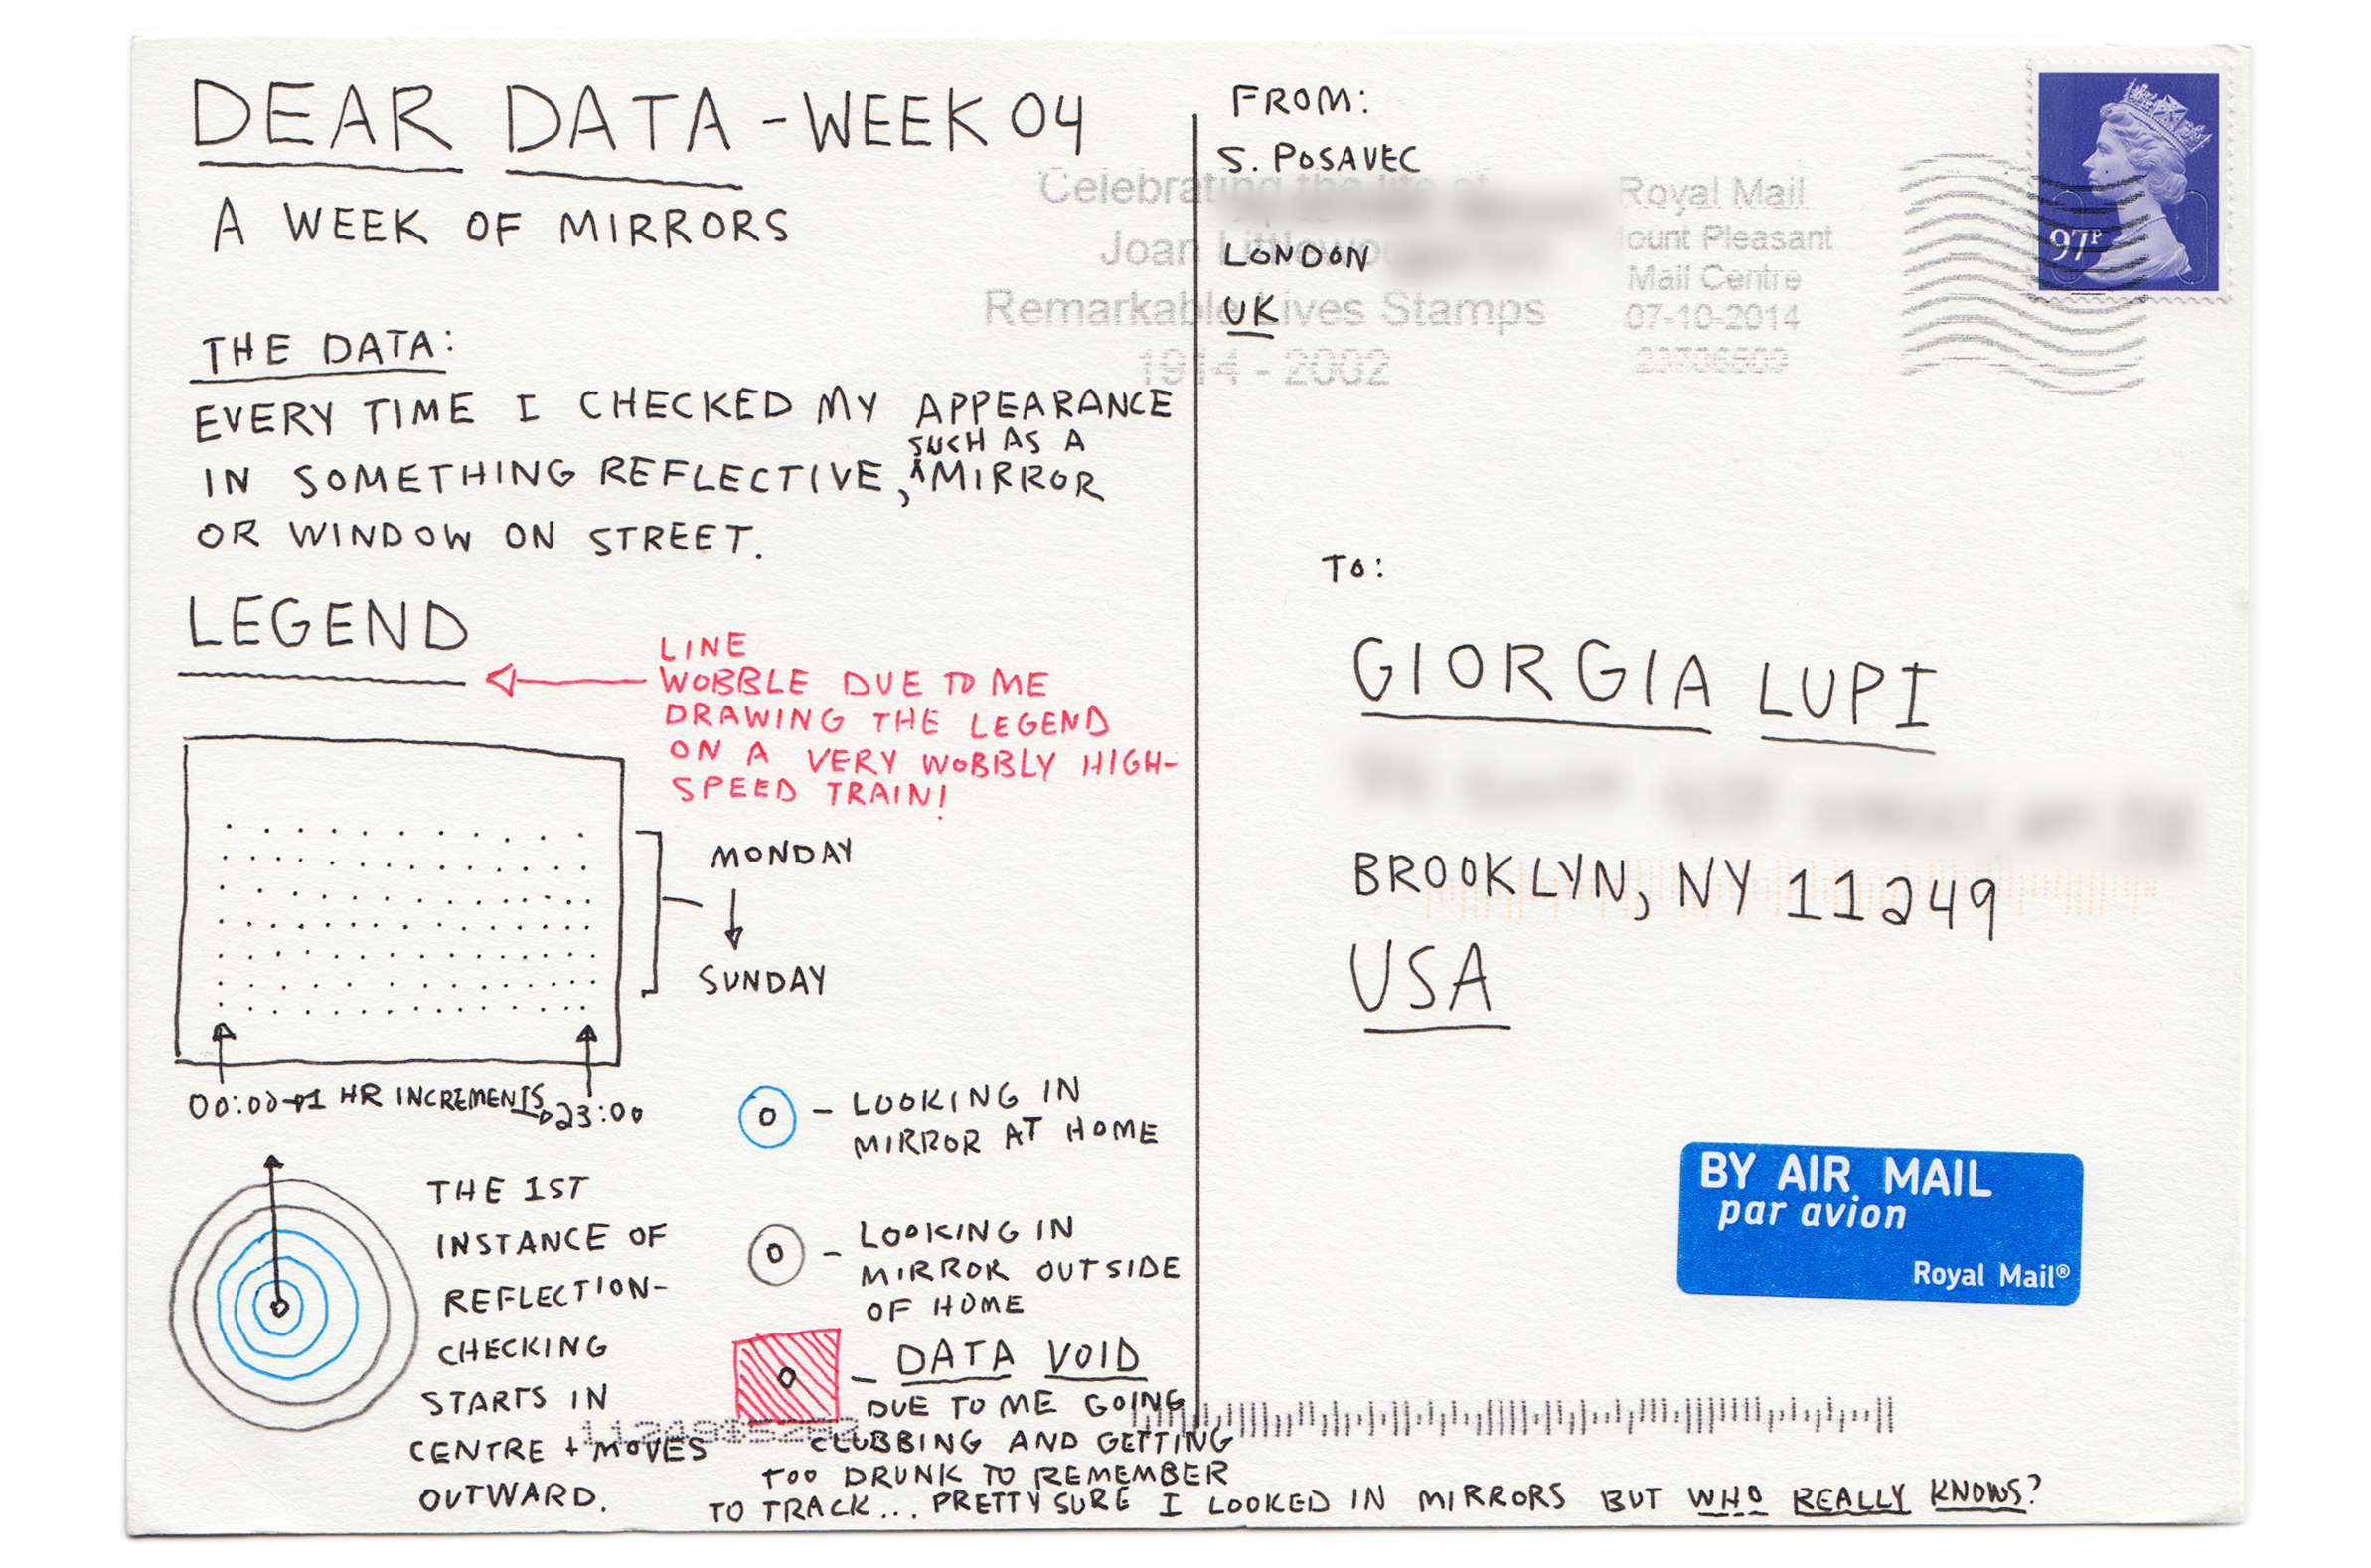 DEAR DATA - WEEK 04
A WEEK OF MIRRORS
THE DATA:
EVERY TIME I CHECKED MY APPEARANCE
IN SOMETHING REFLECTIVE, SUCH AS A MIRROR
OR WINDOW ON STREET.
LEGEND
LINE
WOBBLE DUE TO ME
DRAWING THE LEGEND
ON A VERY WOBBLY HIGH-
SPEED TRAIN!
MONDAY
SUNDAY
00:00 1 HR INCREMENTS 23:00
THE 1ST
INSTANCE OF
REFLECTION-
CHECKING
STARTS IN
CENTRE + MOVES
OUTWARD.
- LOOKING IN
MIRROR AT HOME
- LOOKING IN
MIRROR OUTSIDE
OF HOME
- DATA VOID
DUE TO ME GOING
CLUBBING AND GETTING
TOO DRUNK TO REMEMBER
TO TRACK... PRETTY SURE I LOOKED IN MIRRORS BUT WHO REALLY KNOWS?
FROM:
S. POSAVEC
LONDON
UK
Celebrating the life of
Joan Littlewood
Remarkable Lives Stamps
1914 - 2002
Royal Mail
Mount Pleasant
Mail Centre
07-10-2014
97P
TO:
GIORGIA LUPI
BROOKLYN, NY 11249
USA
BY AIR MAIL
par avion
Royal Mail®